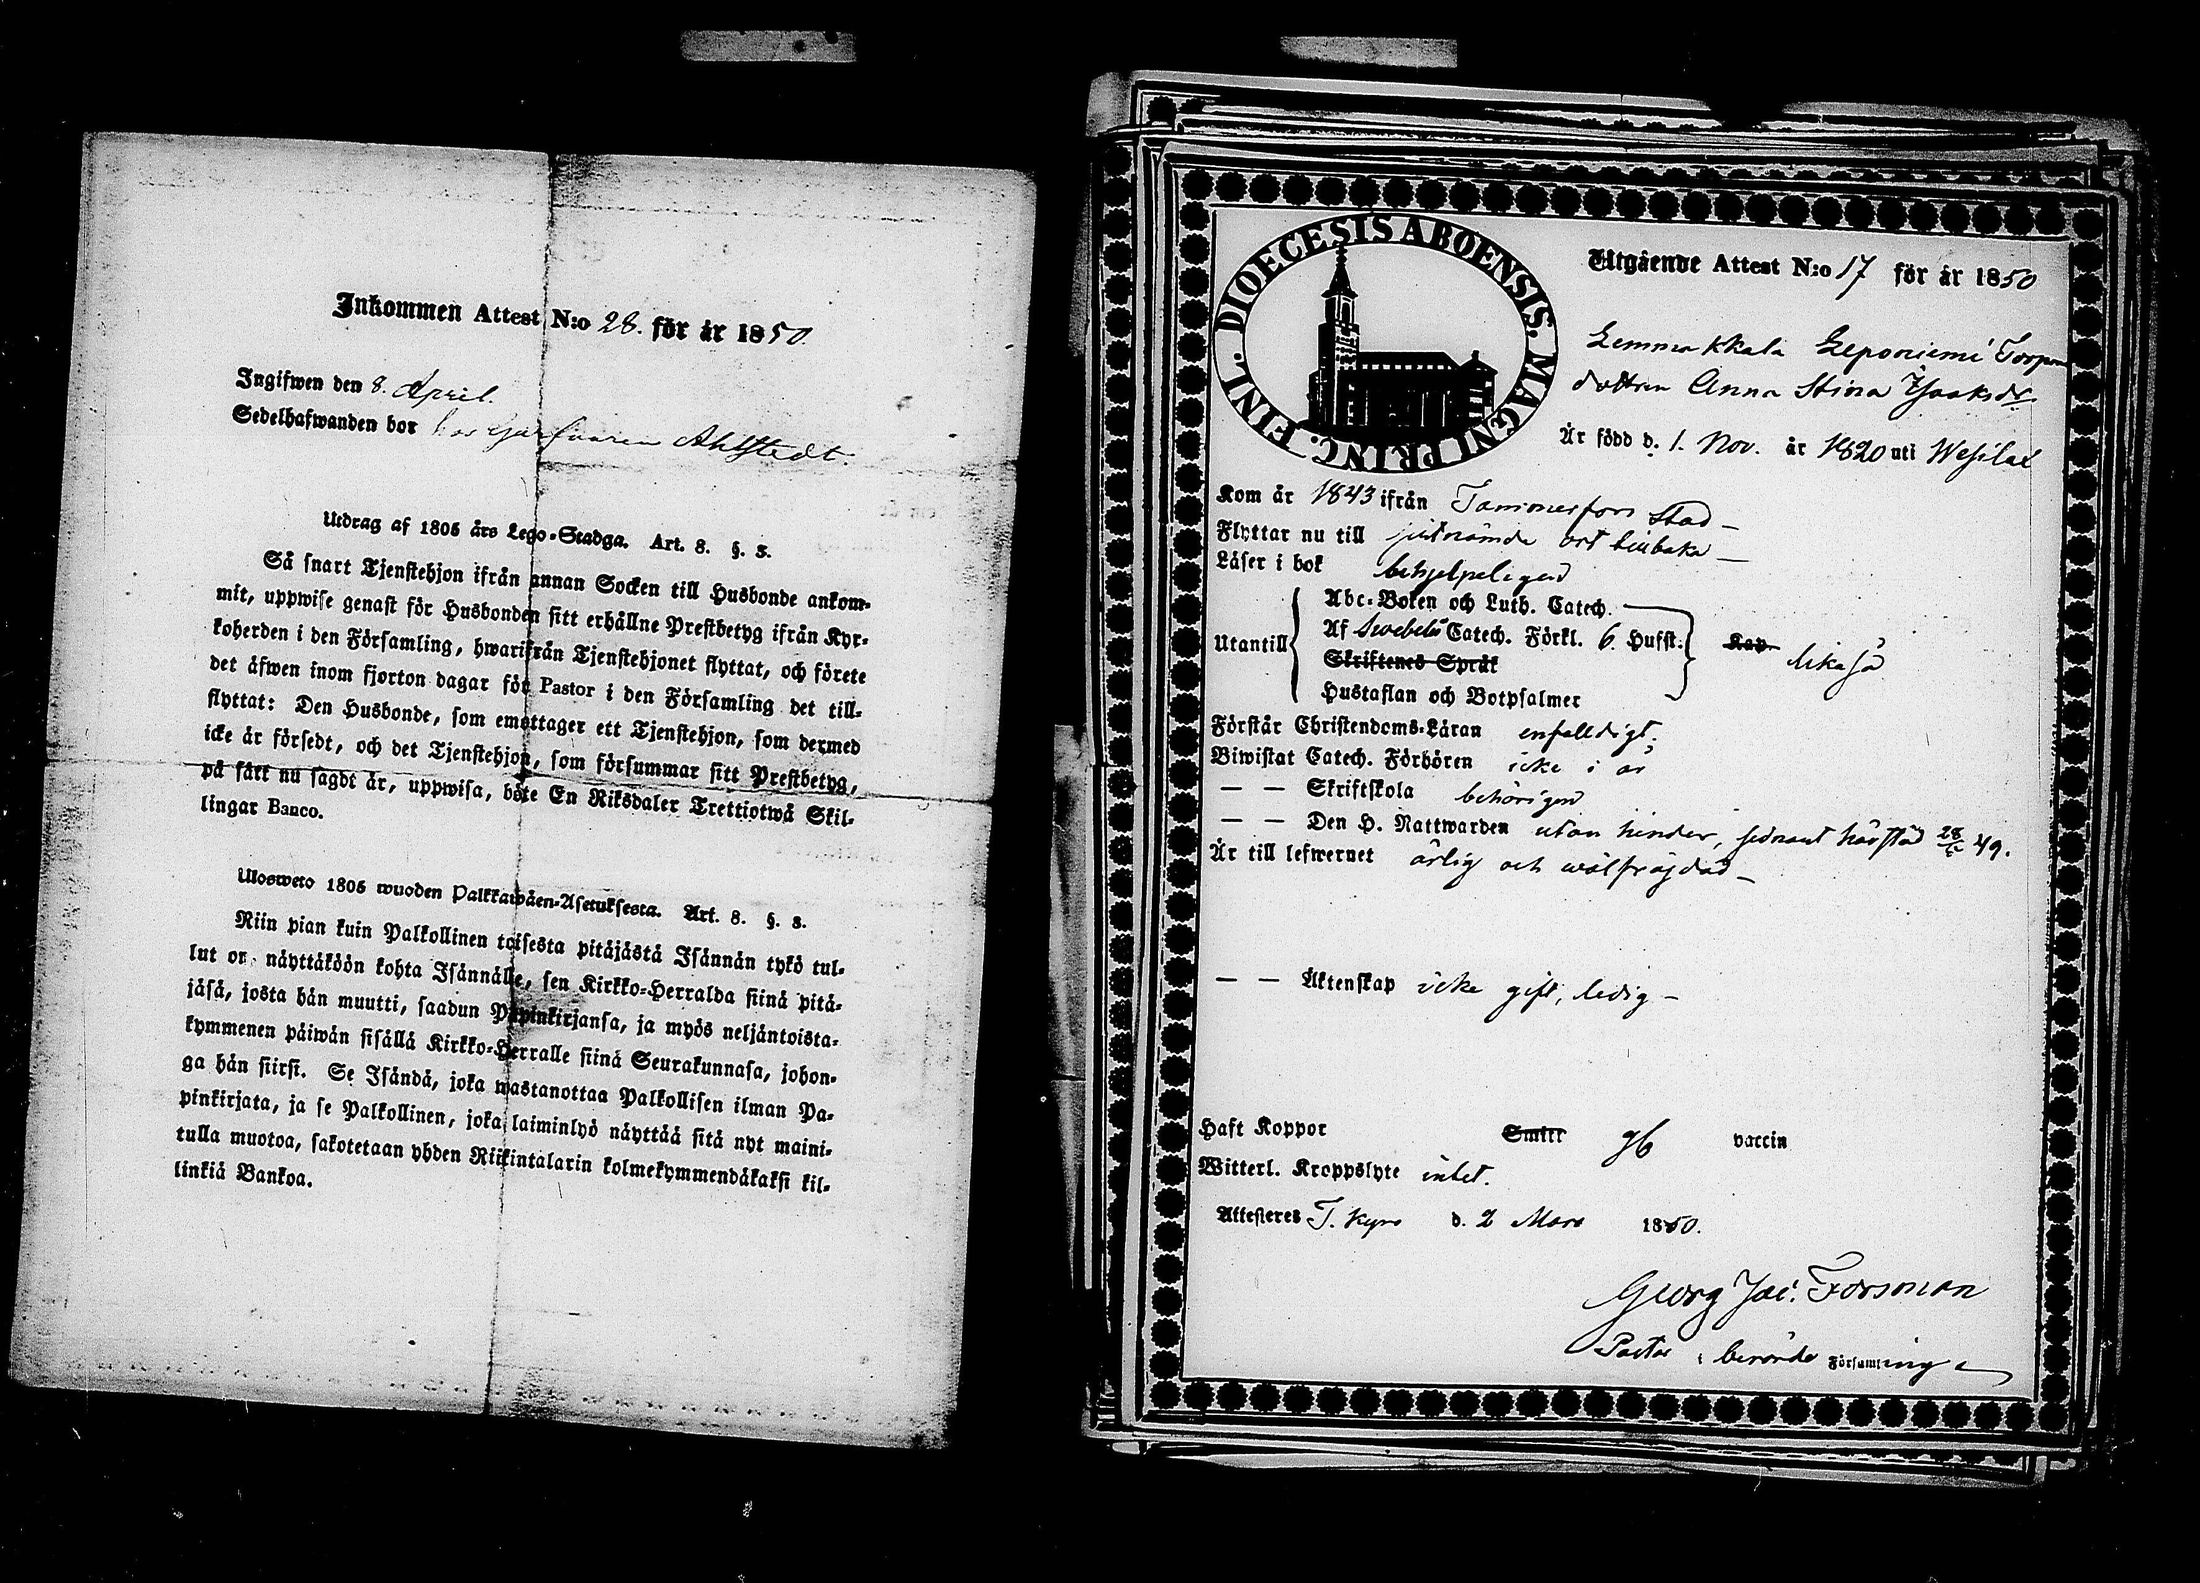 Inkommen Attest N:o 28. för år 1850.
Ingifwen den 8. April.
Sedelhafwanden bor hos Garfvaren Ahlstedt.
Utdrag af 1805 års Lego-Stadga. Art. 8. §. 3.
Så snart Tjenstehjon ifrån annan Socken till Husbonde ankom-
mit, uppwise genast för Husbonden sitt erhållne Prestbetyg ifrån Kyr-
koherden i den Församling, hwarifrån Tjenstehjonet flyttat, och förete
det äfwen inom fjorton dagar för Pastor i den Församling det till-
flyttat: Den Husbonde, som emottager ett Tjenstehjon, som dermed
icke är försedt, och det Tjenstehjon, som försummar sitt Prestbetyg,
på sätt nu sagdt är, uppwisa, böte En Riksdaler Trettiotwå Skil-
lingar Banco.
Ulosweto 1805 wuoden Palkkawäen-Asetuksesta. Art. 8. §. 3.
Niin pian kuin Palkollinen toisesta pitäjästä Isännän tykö tul-
lut on, näyttäköön kohta Isännälle, sen Kirkko-Herralda siinä pitä-
jäsä, josta hän muutti, saadun Papinkirjansa, ja myös neljäntoista-
kymmenen päiwän sisällä Kirkko-Herralle siinä Seurakunnasa, johon-
ga hän siirsi. Se Isändä, joka wastanottaa Palkollisen ilman Pa-
pinkirjata, ja se Palkollinen, joka laiminlyö näyttää sitä nyt maini-
tulla muotoa, sakotetaan yhden Riikintalarin kolmekymmendäkaksi kil-
linkiä Bankoa.
FINL. DIOECESIS ABOENSIS. MAGNI PRINC.
Utgående Attest N:o 17 för år 1850
Lemmakkala Leponiemi Torpare
dottren Anna Stina Isaaksdr
Är född d. 1. Nov. år 1820 uti Wesilax
Kom år 1843 ifrån Tammerfors stad –
Flyttar nu till sistnämde ort tillbaka –
Läser i bok behjelpeligen
Abc-Boken och Luth. Catech.
Utantill Af Swebelii Catech. Förkl. 6. Hufst: Kap. lika så
Skriftenes Språk
Hustaflan och Botpsalmer
Förstår Christendoms-Läran enfelldigt.
Biwistat Catech. Förhören icke i år
– – Skriftskola behörigen
– – Den H. Nattwarden utan hinder, sednast härstäd 28/5 49.
Är till lefwernet ärlig och wälfrägdad –
– – Äktenskap icke gift, ledig –
Haft Koppor Smitt gb vaccin
Witterl. Kroppslyte intet.
Attesteres T. Kyro d. 2 Mars 1850.
Georg Jac. Forsman
Pastor i berörde Församling